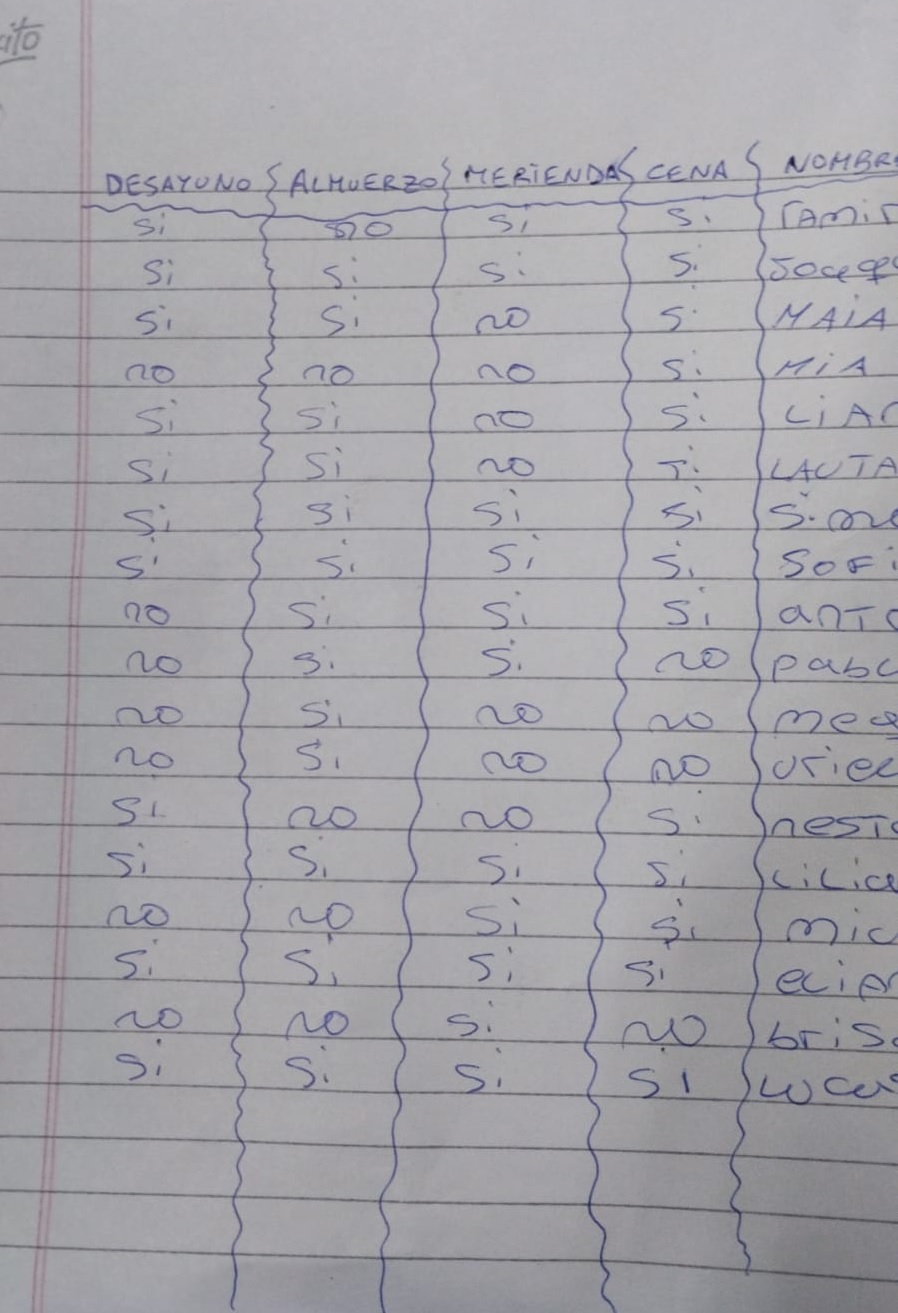 ito
DESAYUNO ALMUERZO MERIENDA CENA NOMBR
Si no Si Si ramir
Si Si Si Si
Si Si no Si MAIA
no no no Si MiA
Si Si no Si LiA
Si Si no Si LAUTA
Si Si Si Si Sime
Si Si Si Si SoFi
no Si Si Si anTo
no Si Si no pabl
no Si no no
no Si no no Uriel
Si no no Si nesTo
Si Si Si Si Lilia
no no Si Si mic
Si Si Si Si
no no Si no brisa
Si Si Si Si Lucas